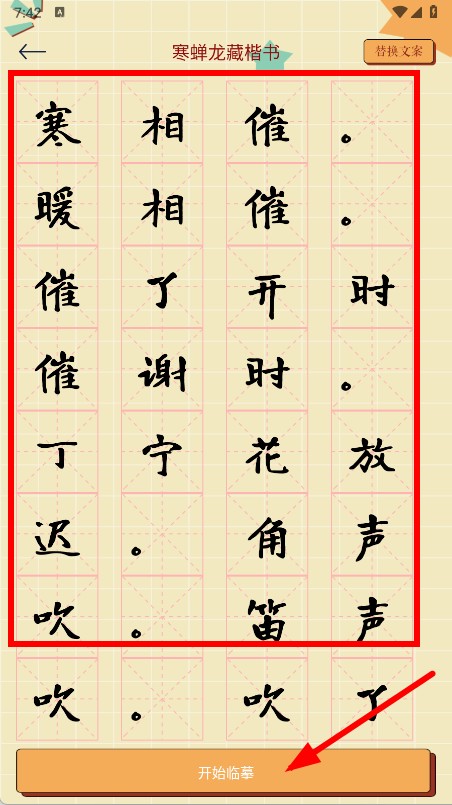 7:42
A
寒蝉龙藏楷书
替换文案
寒相催。
暖相催。
催了开时
催谢时。
丁宁花放
迟。角声
吹。笛声
吹。吹了
开始临摹